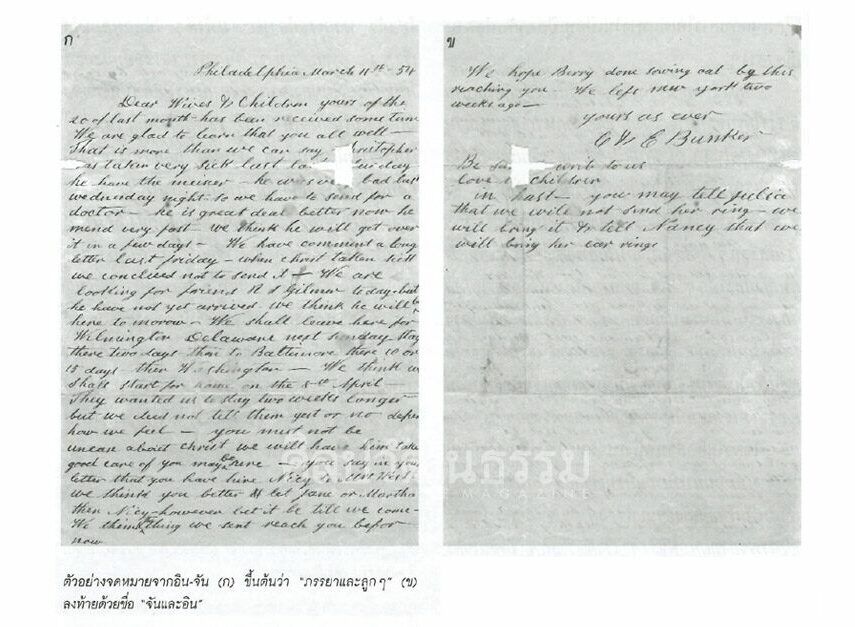 ก
Philadelphia March 11th 54
Dear Wives & Children yours of the
20 of last month has been received some time
We are glad to learn that you all well –
that is more than we can say
was taken very sick last
he have the – he was bad last
wednesday night so we have to send for a
doctor – he is great deal better now he
mend very fast – we think he will get over
it in a few days – We have comment a long
letter last friday – when christ taken sick
we conclued not to send it – We are
looking for friend R S Gilmer to day but
he have not yet arrived we think he will be
here to morow – We shall leave here for
Wilmington Delaware next sunday stay
there two days than to Baltimore there 10 or
15 days then Washington – We think we
shall start for home on the April –
They wanted us to stay two weeks longer
but we did not tell them or no
how we feel – you must not be
uneasy about christ we will have him take
good care of you may be sure – you say in your
letter that you have hire Nicy to
we think you better let Jane or Martha
then Nicy however let it be till we come –
We thing we sent reach you befor
now
ข
We hope Berry done sowing oat by this
reaching you – We left new york two
weeks ago –
yours as ever
C & E Bunker
Be to us
love children
in hast – you may tell Julia
that we will not send her ring – we
will bring it & tell Nancy that we
will bring her ear rings
ศิลปวัฒนธรรม
MAGAZINE
ตัวอย่างจดหมายจากอิน-จัน (ก) ขึ้นต้นว่า "ภรรยาและลูกๆ" (ข)
ลงท้ายด้วยชื่อ "จันและอิน"